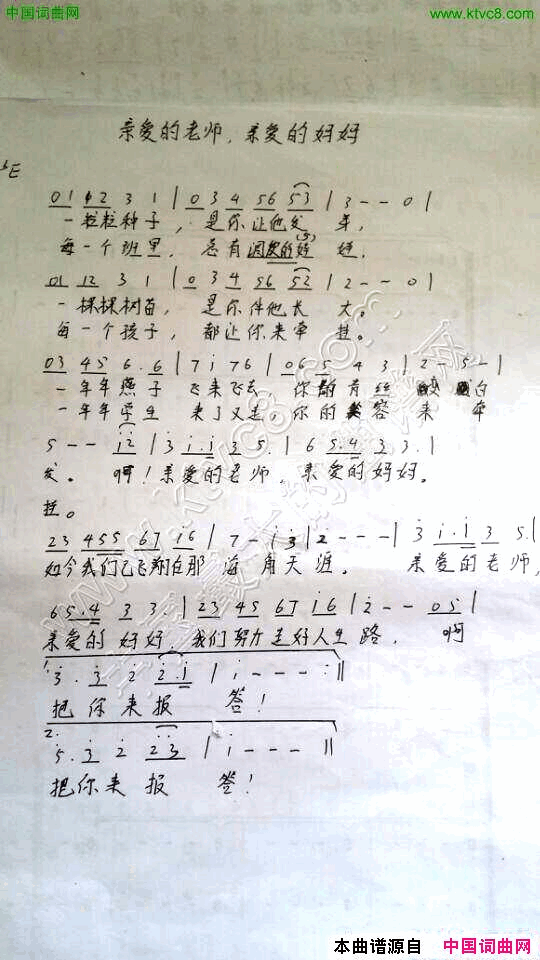 中国词曲网
www.ktvc8.com
亲爱的老师,亲爱的妈妈
♭E
01 12 3 1 | 0 3 4 56 53 | 3 - - 0 |
一粒粒种子,是你让他发 芽,
每一个班里,总有
01 12 3 1 | 0 3 4 56 52 | 2 - - 0 |
一棵棵树苗,是你伴他长 大。
每一个孩子,都让你来牵 挂。
03 45 6.6 | 7 i 76 | 06 5 4 3 | 2 5 - |
一年年燕子 飞来飞去 你的青丝 白
一年年学生 来了又走,你的笑容 来 牵
5 - - i2 | 3 i.i 3 5. | 6 5.4 3 3. |
发。 啊!亲爱的老师,亲爱的妈妈。
挂。
23 455 67 i6 | 7 - i 3 | 2 - - - | 3 i.i 3 5. |
如今我们已飞翔在那 海角天涯。 亲爱的老师,
6 5.4 3 3. | 23 45 67 i6 | 2 - - 05 |
亲爱的妈妈,我们努力走好人生路, 啊
1.
3. 3 2 2.1 | i - - - :||
把你来报 答!
2.
5. 3 2 23 | i - - - ||
把你来报 答!
www.ktvc8.com
本曲谱源自 中国词曲网